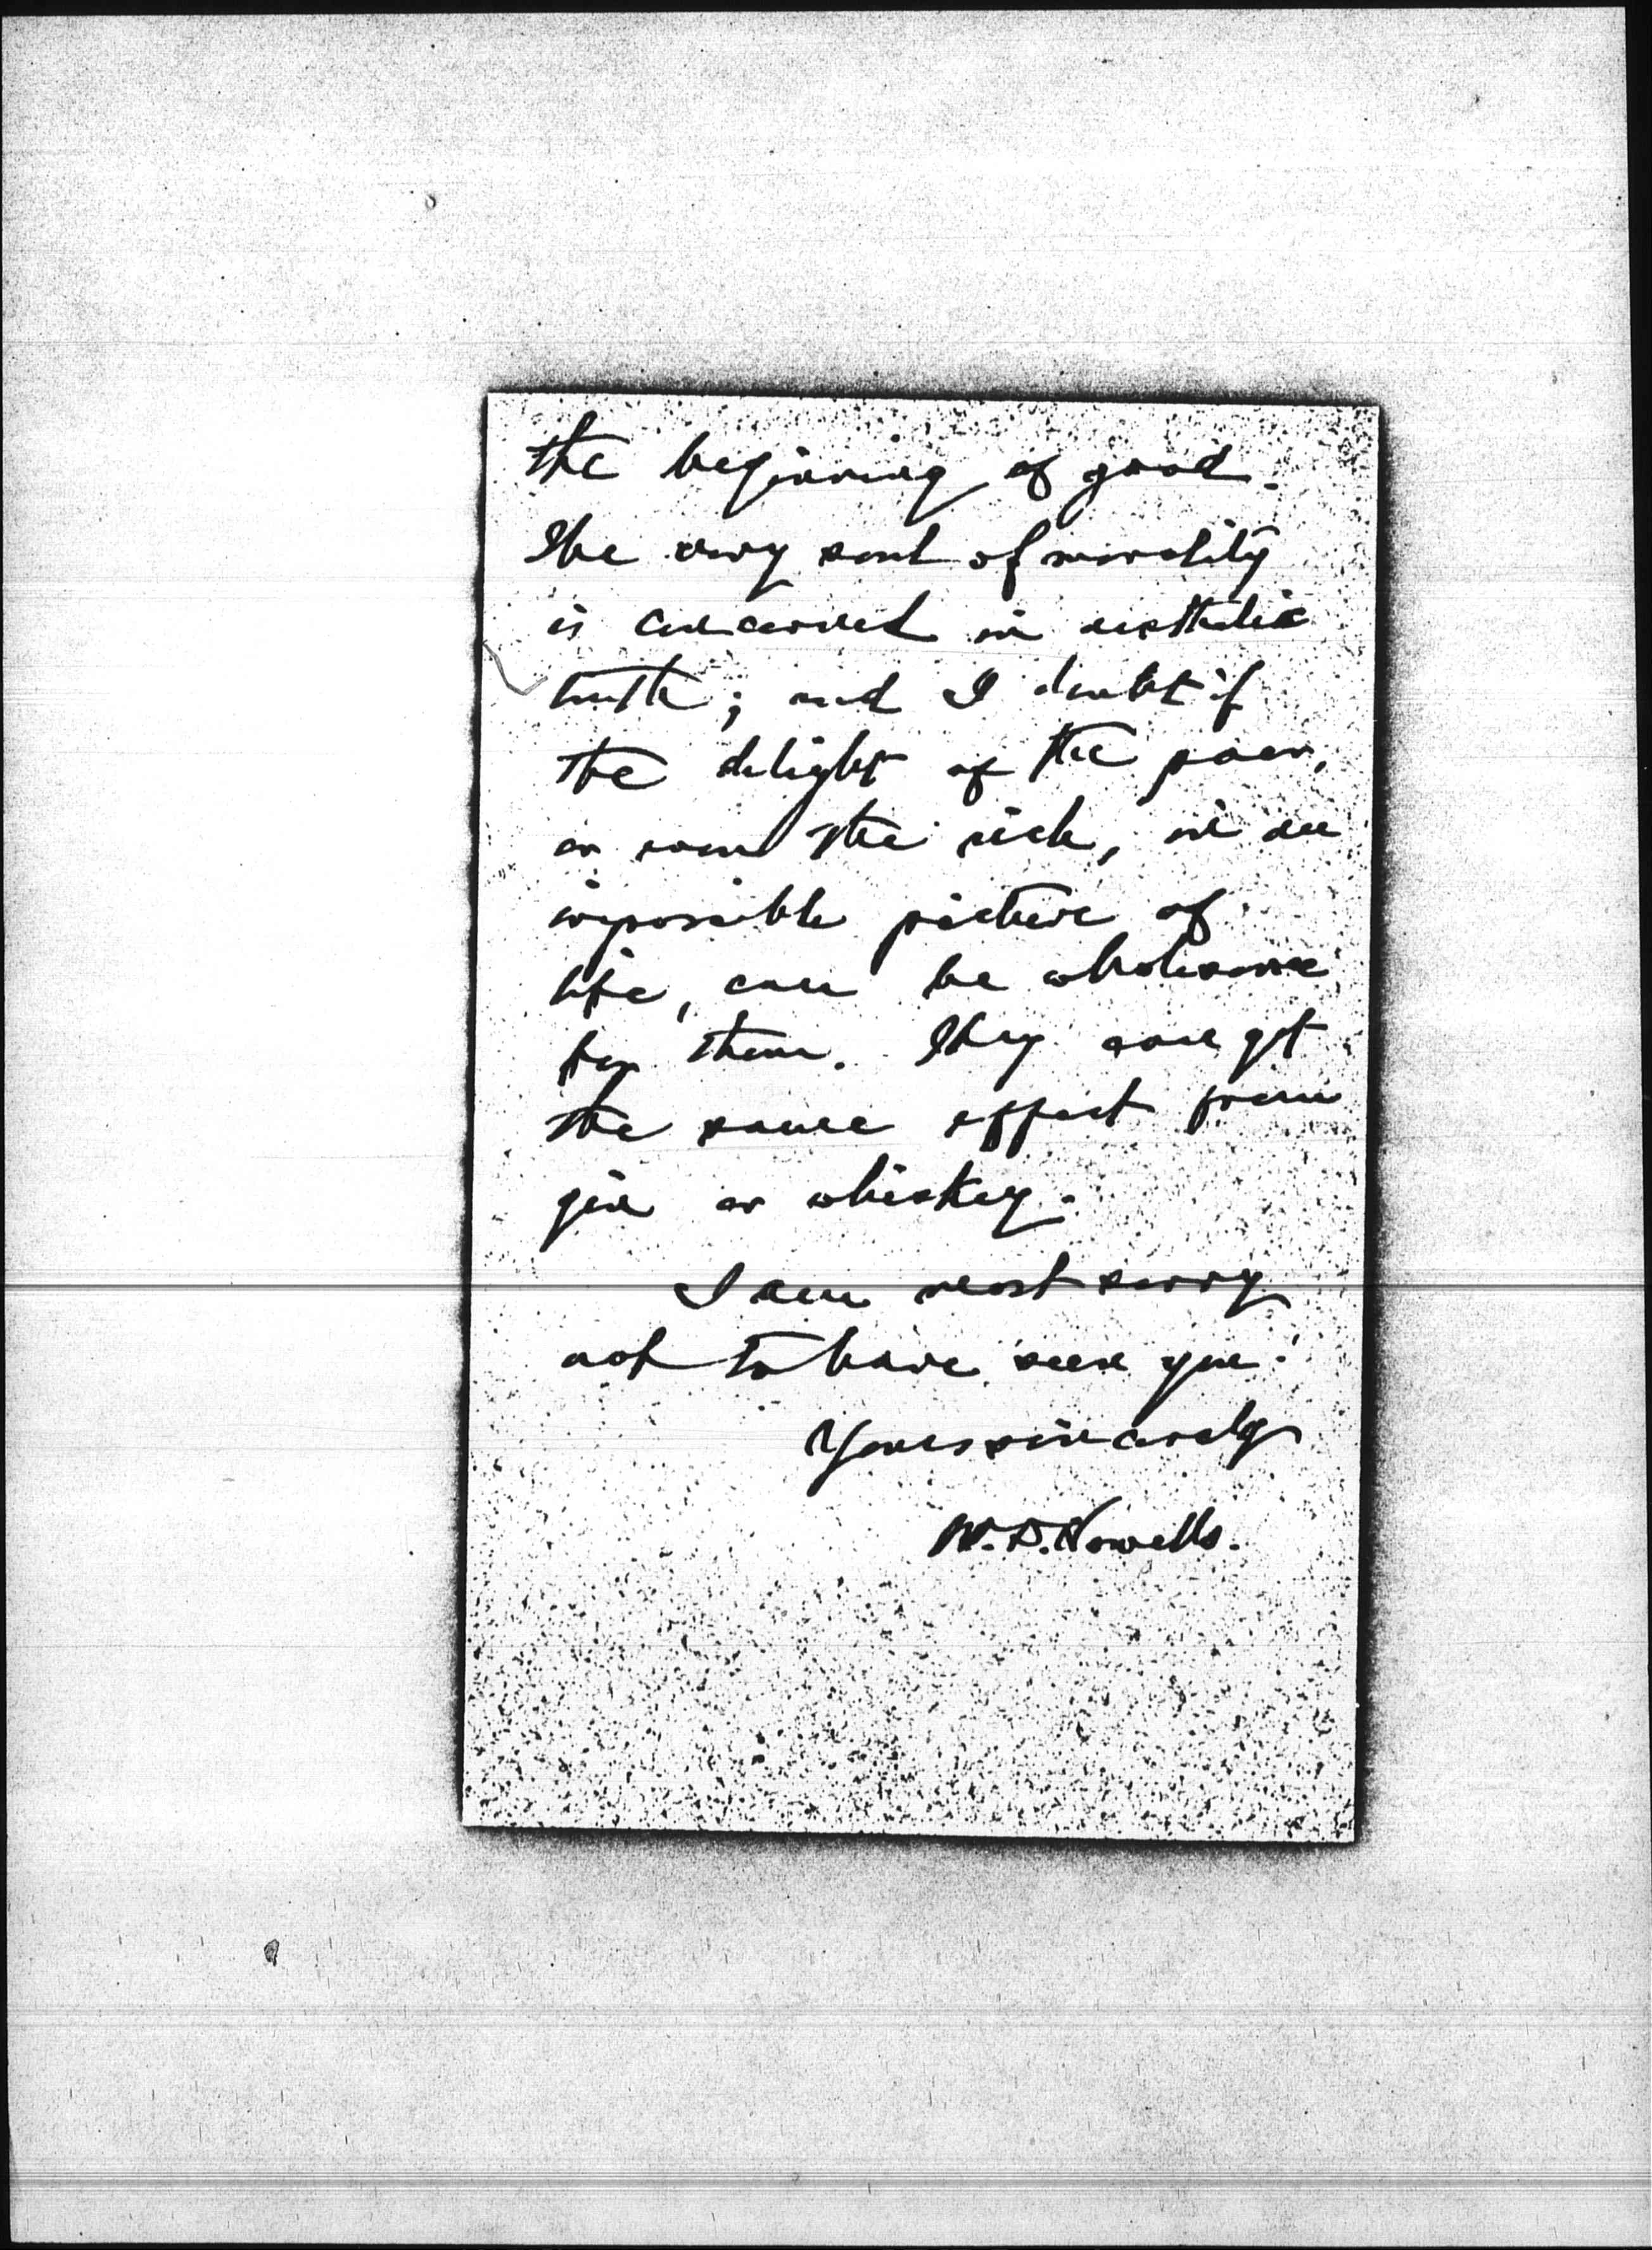 the beginning of good.
The very soul of morality
is concerned in aesthetic
truth; and I doubt if
the delight of the poor,
or even the rich, in an
impossible picture of
life, can be wholesome
for them. They can get
the same effect from
gin or whiskey.
I am most sorry
not to have seen you.
Yours sincerely
W.D. Howells.